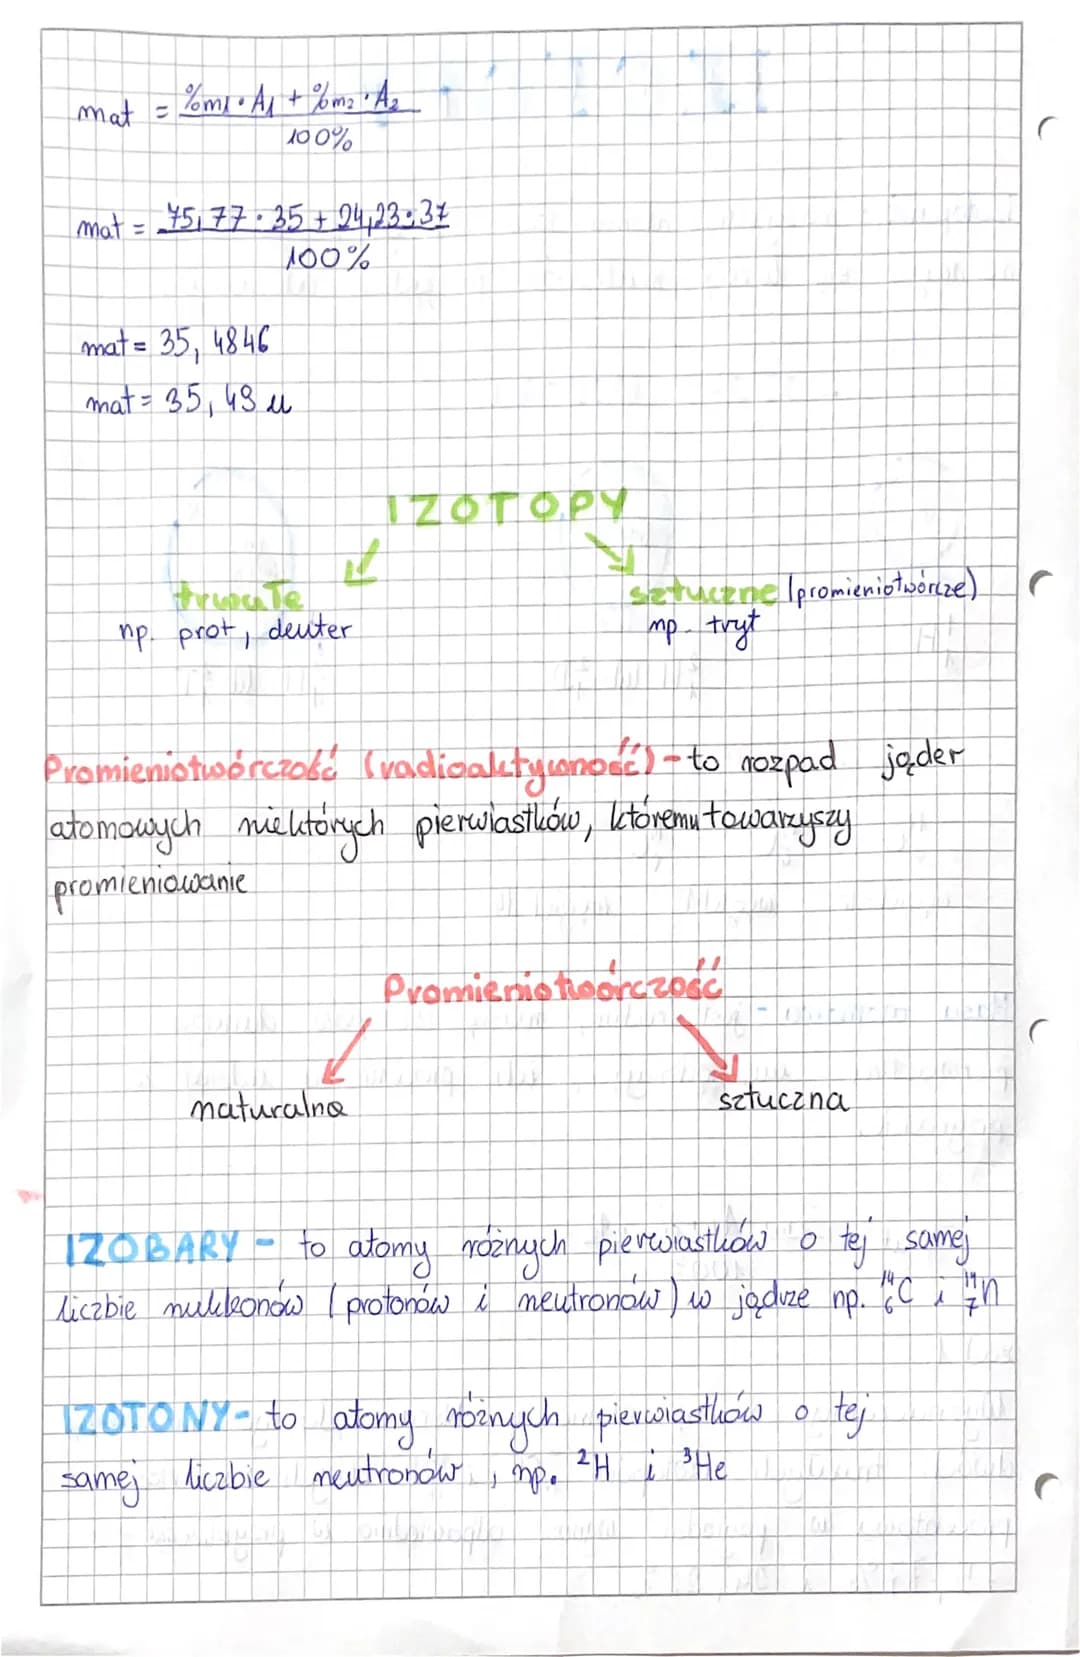 mat = %m1 • A1 + %m2 • A2
100%
mat = 75,77 • 35 + 24,23 • 37
100%
mat = 35, 4846
mat = 35, 48 u
IZOTOPY
trwałe sztuczne (promieniotwórcze)
np. prot, deuter np. tryt
Promieniotwórczość (radioaktywność) - to rozpad jąder
atomowych niektórych pierwiastków, któremu towarzyszy
promieniowanie
Promieniotwórczość
naturalna sztuczna
IZOBARY - to atomy różnych pierwiastków o tej samej
liczbie nukleonów (protonów i neutronów) w jądrze np. ¹⁴₆C i ¹⁴₇N
IZOTONY - to atomy różnych pierwiastków o tej
samej liczbie neutronów, np. ²H i ³He